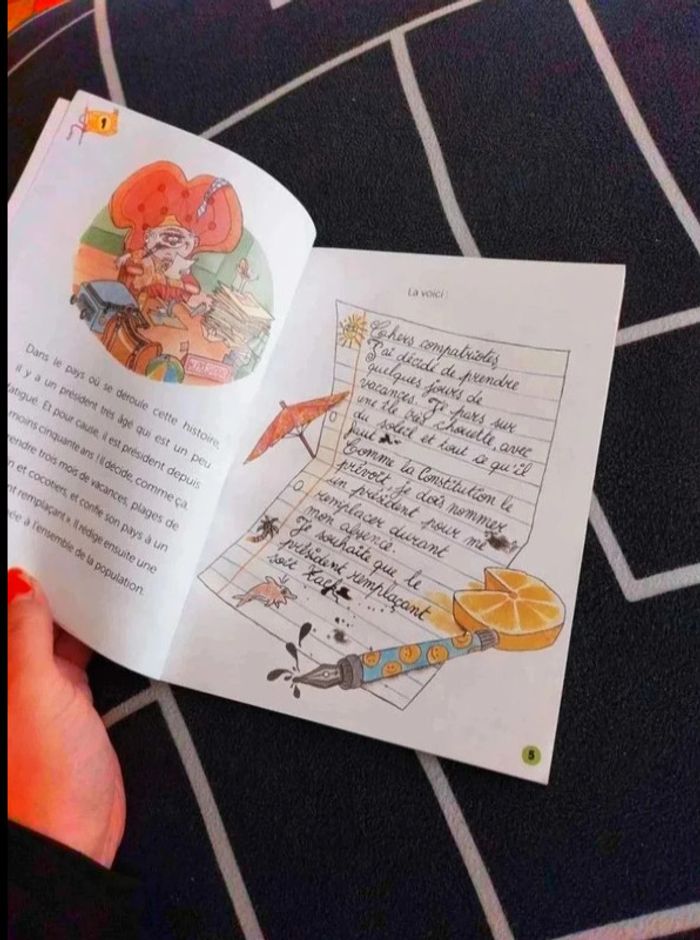 1
Dans le pays où se déroule cette histoire,
il y a un président très âgé qui est un peu
fatigué. Et pour cause, il est président depuis
moins cinquante ans ! Il décide, comme ça,
trois mois de vacances, plages de
et cocotiers, et confie son pays à un
remplaçant ». Il rédige ensuite une
à l'ensemble de la population.
La voici :
Cahers compatriotes,
J'ai décidé de prendre
quelques jours de
vacances. Je pars sur
une île bien chouette, avec
du soleil et tout ce qu'il
faut
Comme la Constitution le
prévoit, je dois nommer
un président pour me
remplacer durant
mon absence.
Je souhaite que le
président remplaçant
soit
5